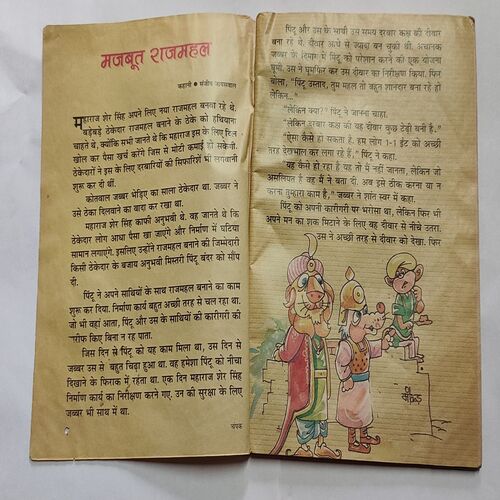 मजबूत राजमहल
कहानी • संजीव जायसवाल
महाराज शेर सिंह अपने लिए नया राजमहल बनवा रहे थे.
बड़ेबड़े ठेकेदार राजमहल बनाने के ठेके को हथियाना
चाहते थे, क्योंकि सभी जानते थे कि महाराज इस के लिए दिल
खोल कर पैसा खर्च करेंगे जिस से मोटी कमाई हो सकेगी.
ठेकेदारों ने इस के लिए दरबारियों की सिफारिशें भी लगवानी
शुरू कर दी थीं.
कोतवाल जब्बर भेड़िए का साला ठेकेदार था. जब्बर ने
उसे ठेका दिलवाने का वादा कर रखा था.
महाराज शेर सिंह काफी अनुभवी थे. वह जानते थे कि
ठेकेदार लोग आधा पैसा खा जाएंगे और निर्माण में घटिया
सामान लगाएंगे. इसलिए उन्होंने राजमहल बनाने की जिम्मेदारी
किसी ठेकेदार के बजाय अनुभवी मिस्तरी पिंटू बंदर को सौंप
दी.
पिंटू ने अपने साथियों के साथ राजमहल बनाने का काम
शुरू कर दिया. निर्माण कार्य बहुत अच्छी तरह से चल रहा था.
जो भी वहां आता, पिंटू और उस के साथियों की कारीगरी की
तारीफ किए बिना न रह पाता.
जिस दिन से पिंटू को यह काम मिला था, उस दिन से
जब्बर उस से बहुत चिढ़ा हुआ था. वह हमेशा पिंटू को नीचा
दिखाने के फिराक में रहता था. एक दिन महाराज शेर सिंह
निर्माण कार्य का निरीक्षण करने गए. उन की सुरक्षा के लिए
जब्बर भी साथ में था.
चंपक
पिंटू और उस के साथी उस समय दरबार कक्ष की दीवार
बना रहे थे. दीवार आधे से ज्यादा बन चुकी थी. अचानक
जब्बर के दिमाग में पिंटू को परेशान करने की एक योजना
घूमी. उस ने घूमफिर कर उस दीवार का निरीक्षण किया. फिर
बोला, "पिंटू उस्ताद, तुम महल तो बहुत शानदार बना रहे हो
लेकिन..."
"लेकिन क्या?" पिंटू ने जानना चाहा.
"लेकिन दरबार कक्ष की यह दीवार कुछ टेढ़ी बनी है."
"ऐसा कैसे हो सकता है. हम लोग 1-1 ईंट को अच्छी
तरह देखभाल कर लगा रहे हैं," पिंटू ने कहा.
"यह कैसे हो रहा है यह तो मैं नहीं जानता, लेकिन जो
असलियत है वह मैं ने बता दी. अब इसे ठीक करना या न
करना तुम्हारा काम है," जब्बर ने शांत स्वर में कहा.
पिंटू को अपनी कारीगरी पर भरोसा था, लेकिन फिर भी
अपने मन का शक मिटाने के लिए वह दीवार से नीचे उतरा.
उस ने अच्छी तरह से दीवार को देखा. फिर